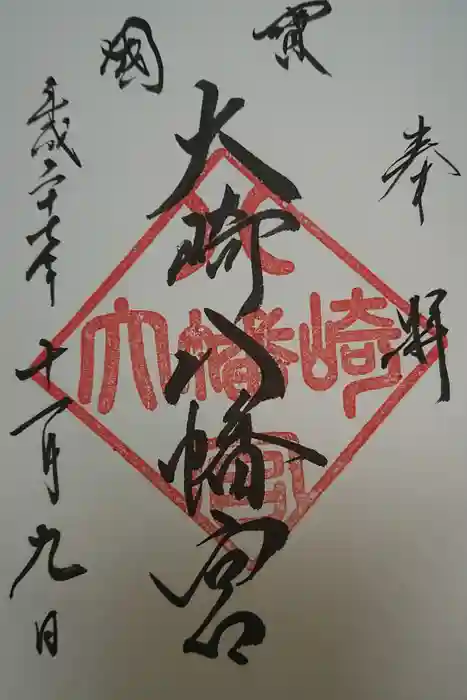 奉拝
國寳
大崎八幡宮
平成二十七年
十一月九日
大崎八幡宮